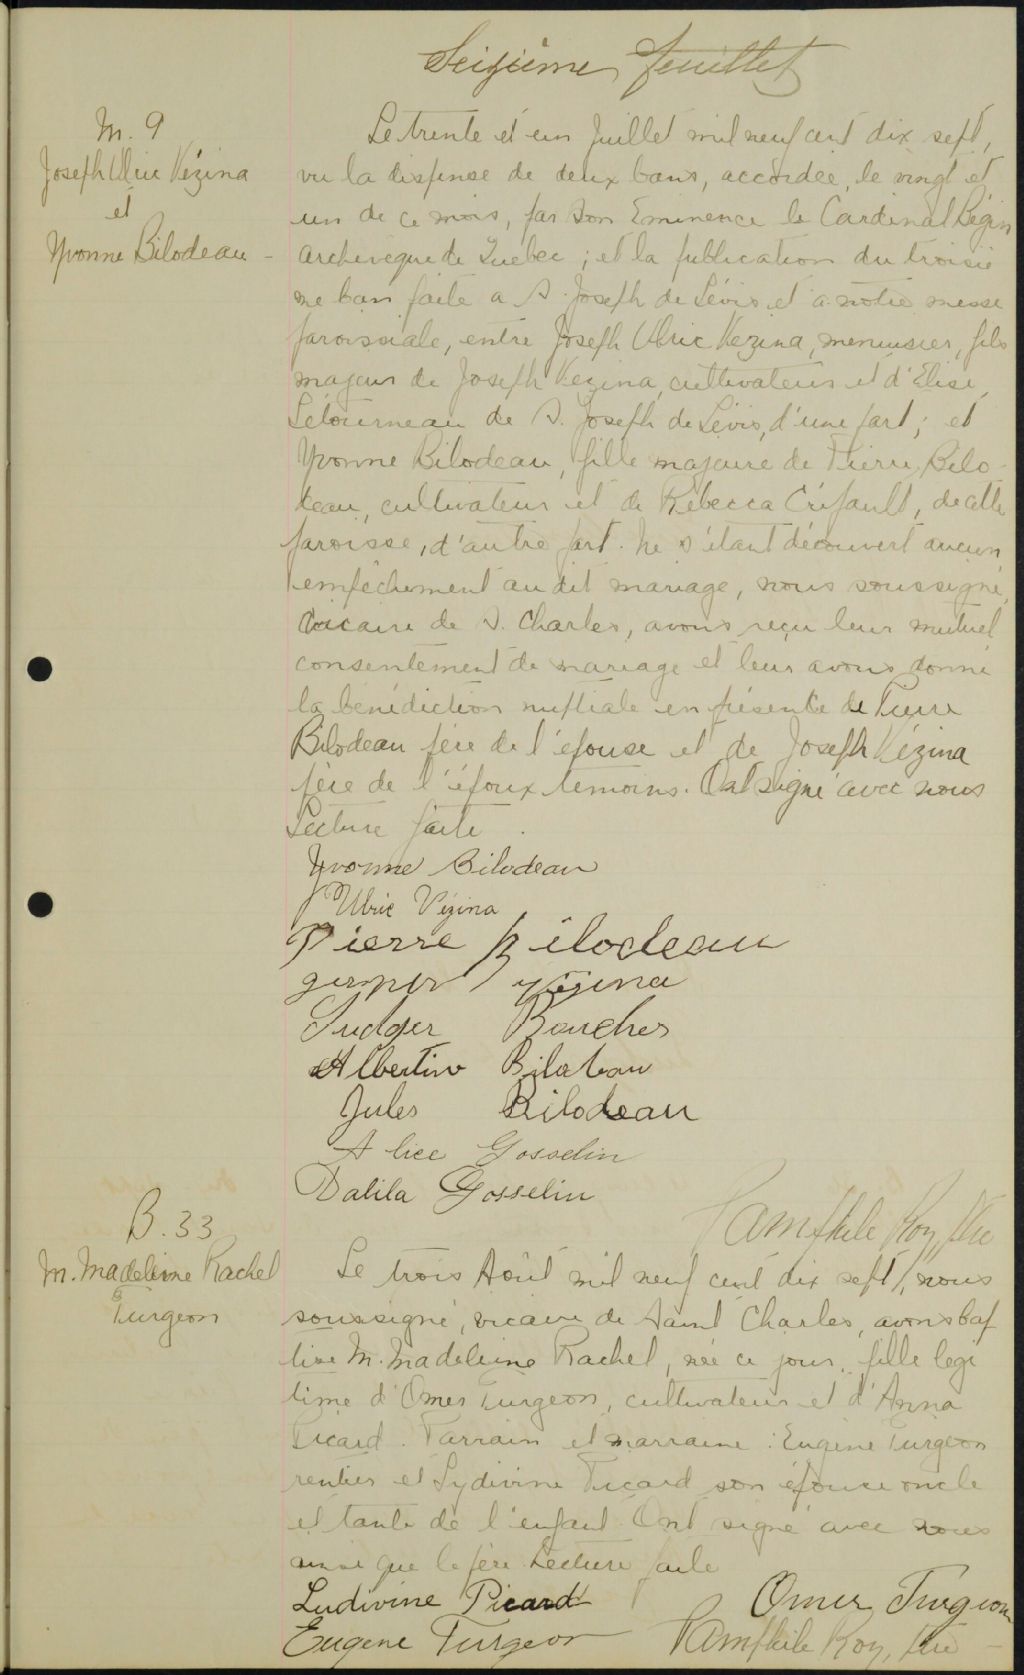 Seizième feuillet
M. 9
Joseph Ulric Vézina
et
Yvonne Bilodeau -
Le trente et un Juillet mil neuf cent dix sept,
vu la dispense de deux bans, accordée, le vingt et
un de ce mois, par Son Eminence le Cardinal Bégin
archevêque de Québec ; et la publication du troisiè
me ban faite a S. Joseph de Lévis et a notre messe
paroissiale, entre Joseph Ulric Vezina, menuisier, fils
majeur de Joseph Vezina, cultivateur et d'Elise
Létourneau de S. Joseph de Lévis, d'une part ; et
Yvonne Bilodeau, fille majeure de Pierre Bilo-
deau, cultivateur et de Rebecca Crépault, de cette
paroisse, d'autre part. Ne s'étant découvert aucun
empêchement au dit mariage, nous soussigné,
vicaire de S. Charles, avons reçu leur mutuel
consentement de mariage et leur avons donné
la bénédiction nuptiale en présence de Pierre
Bilodeau père de l'épouse et de Joseph Vézina
père de l'époux temoins. Ont signé avec nous
Lecture faite.
Yvonne Bilodeau
Ulric Vézina
Pierre Bilodeau
Vézina
Boucher
Albertine
Jules Bilodeau
Alice Gosselin
Dalila Gosselin
Pamphile Roy, Ptre
B. 33
M. Madeleine Rachel
Turgeon
Le trois Août mil neuf cent dix sept, nous
soussigné, vicaire de Saint Charles, avons bap
tisé M. Madeleine Rachel, née ce jour, fille légi
time d'Omer Turgeon, cultivateur et d'Anna
Picard. Parrain et marraine : Eugène Turgeon
rentier et Lydivine Picard son épouse oncle
et tante de l'enfant Ont signé avec nous
ainsi que le père. Lecture faite
Ludivine Picard
Omer Turgeon
Eugene Turgeon
Pamphile Roy, Ptre -